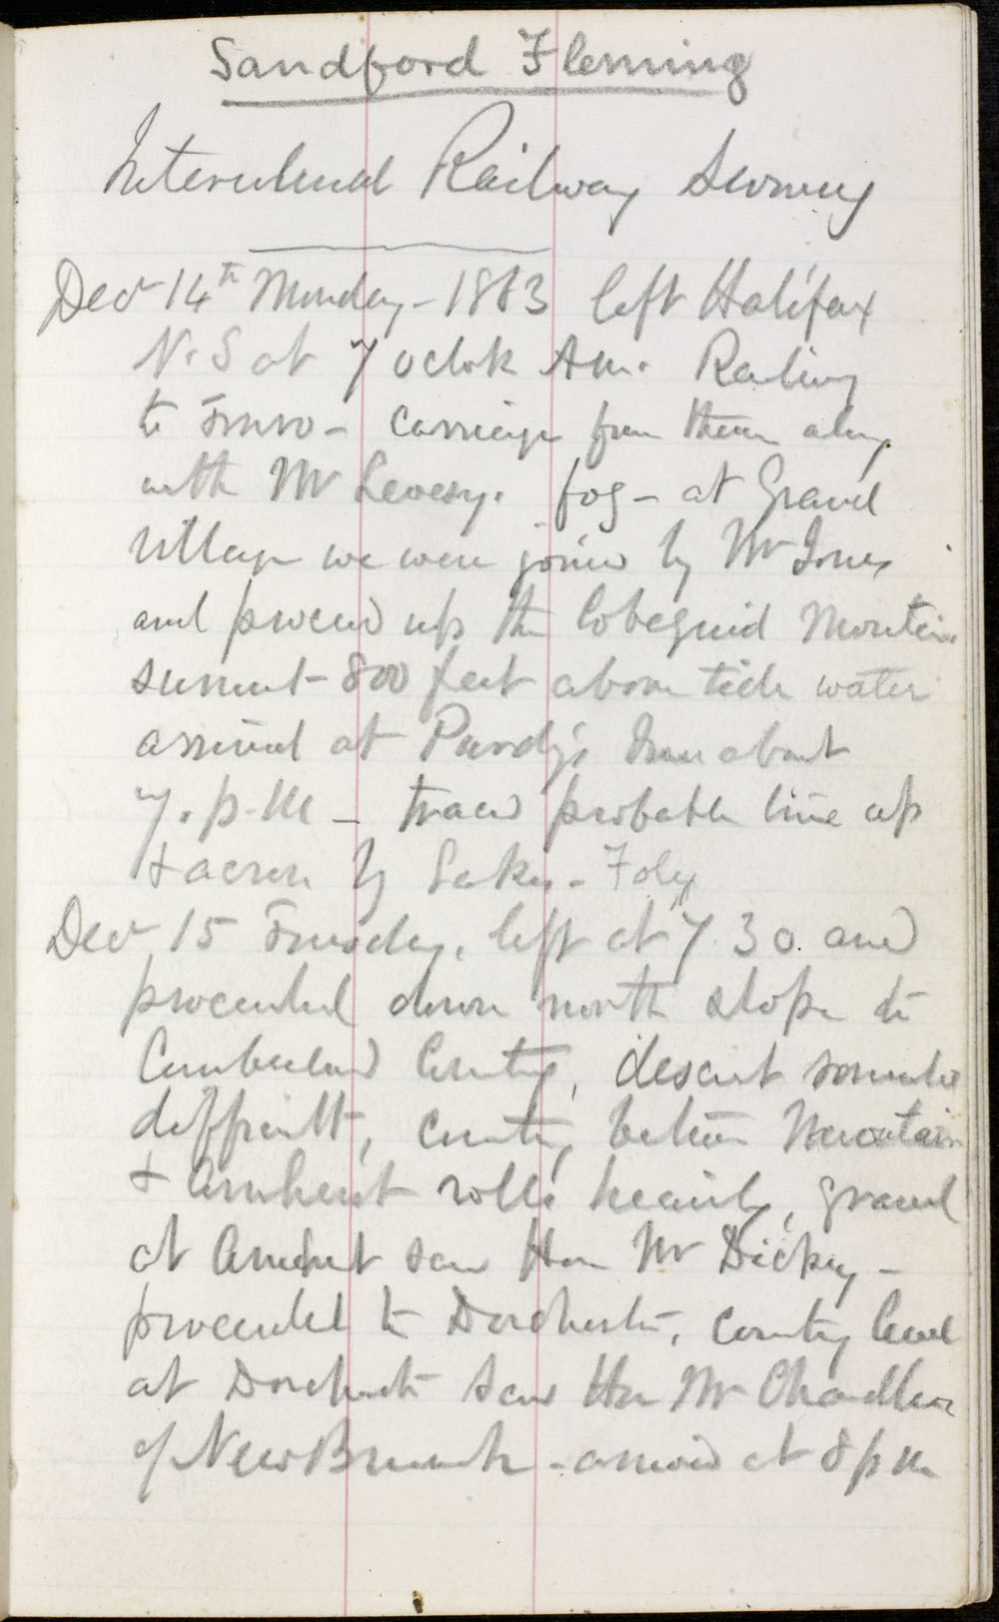 Sandford Fleming
Intercolonial Railway Survey
Decr 14th Monday - 1863 left Halifax
N.S at 7 oclok Am. Railway
to Truro - carriage from there along
with Mr Livesey. fog - at Gravel
village we were joined by Mr Jones
and proceed up the Cobequid Mountain
summit 800 feet above tide water
arrived at Purdys Inn about
7. p.m - traced probable line up
& across by Lakes - Foley
Decr 15 Tuesday. left at 7.30. and
proceeded down north slope to
Cumberland County, descent somewhat
difficult, country between Mountain
& Amherst rolls heavily, gravel
at Amherst saw Hon Mr Dickey -
proceeded to Dorchester, country level
at Dorchester saw Hon Mr Chandler
of New Brunswick - arrived at 8 p m